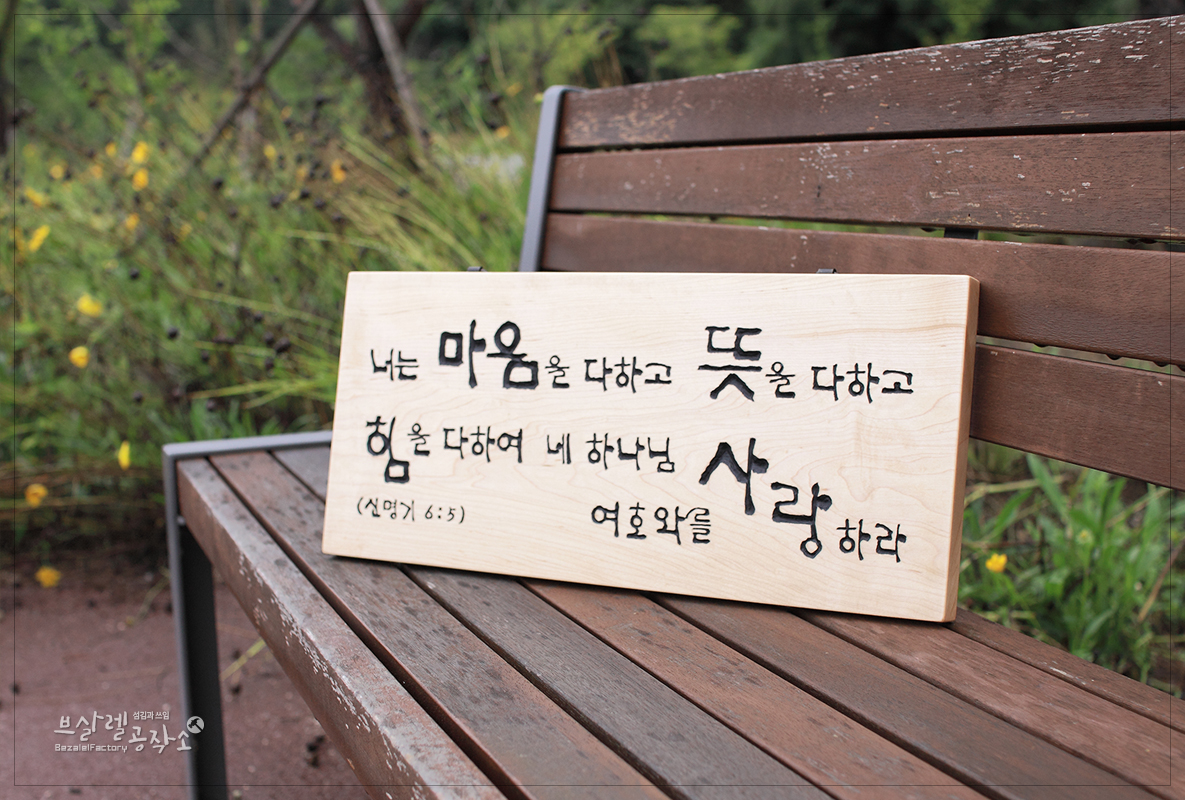 너는 마음을 다하고 뜻을 다하고
힘을 다하여 네 하나님
여호와를 사랑하라
(신명기 6:5)
브살렐 섬김과 쓰임
공작소
BezalelFactory